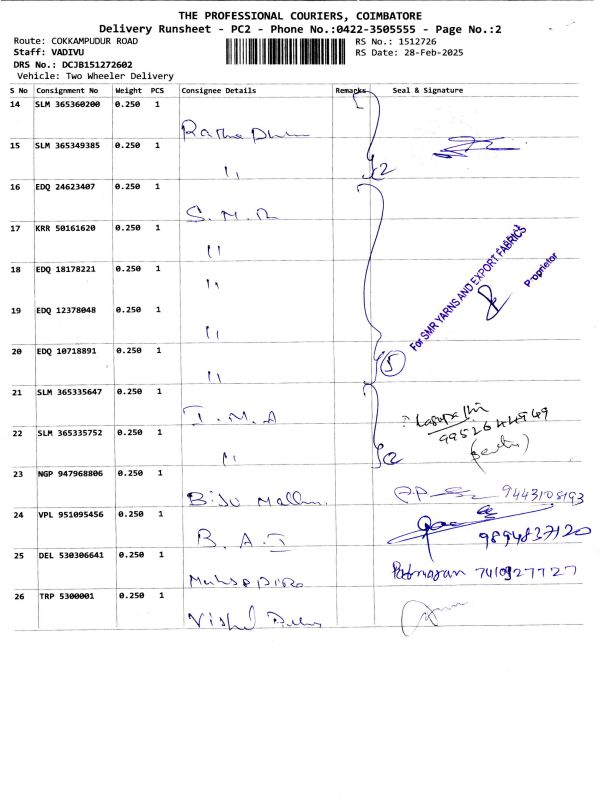 THE PROFESSIONAL COURIERS, COIMBATORE
Delivery Runsheet - PC2 - Phone No.:0422-3505555 - Page No.:2
Route: COKKAMPUDUR ROAD
RS No.: 1512726
Staff: VADIVU
RS Date: 28-Feb-2025
DRS No.: DCJB151272602
Vehicle: Two Wheeler Delivery
S No Consignment No Weight PCS Consignee Details Remarks Seal & Signature
14 SLM 365360200 0.250 1
15 SLM 365349385 0.250 1
" 2
16 EDQ 24623407 0.250 1
S.M.R
17 KRR 50161620 0.250 1
"
18 EDQ 18178221 0.250 1
"
For SMR YARNS AND EXPORT FABRICS
Proprietor
19 EDQ 12378048 0.250 1
"
20 EDQ 10718891 0.250 1
" 5
21 SLM 365335647 0.250 1
I.M.A
22 SLM 365335752 0.250 1
" 2
23 NGP 947968806 0.250 1
Biju 9443108193
24 VPL 951095456 0.250 1
B.A.I 9894837120
25 DEL 530306641 0.250 1
26 TRP 5300001 0.250 1